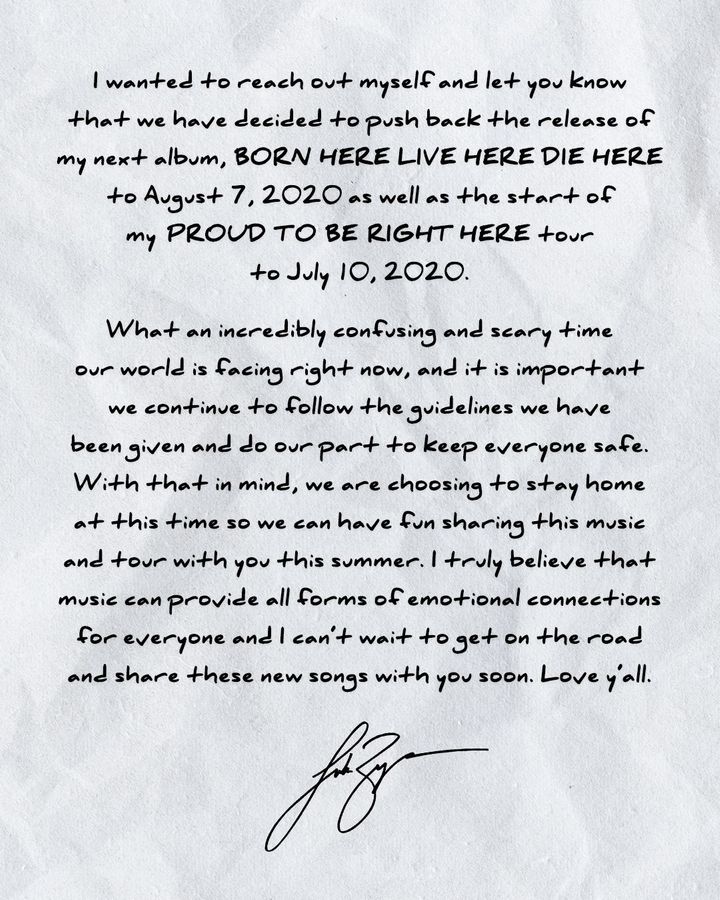 I wanted to reach out myself and let you know
that we have decided to push back the release of
my next album, BORN HERE LIVE HERE DIE HERE
to August 7, 2020 as well as the start of
my PROUD TO BE RIGHT HERE tour
to July 10, 2020.
What an incredibly confusing and scary time
our world is facing right now, and it is important
we continue to follow the guidelines we have
been given and do our part to keep everyone safe.
With that in mind, we are choosing to stay home
at this time so we can have fun sharing this music
and tour with you this summer. I truly believe that
music can provide all forms of emotional connections
for everyone and I can't wait to get on the road
and share these new songs with you soon. Love y'all.